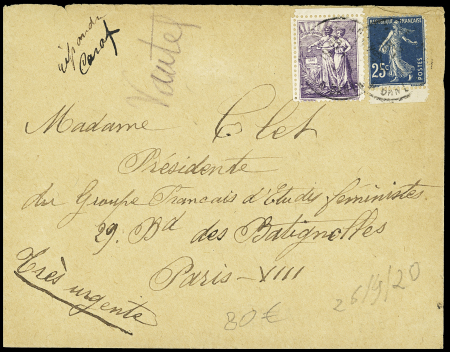 répondu
Carat
RÉPUBLIQUE FRANÇAISE
25c
POSTES
Madame Clet
Présidente
du Groupe Français d'Etudes féministes
29. Bd des Batignolles
Paris-VIII
Très urgente
80€
26/9/20